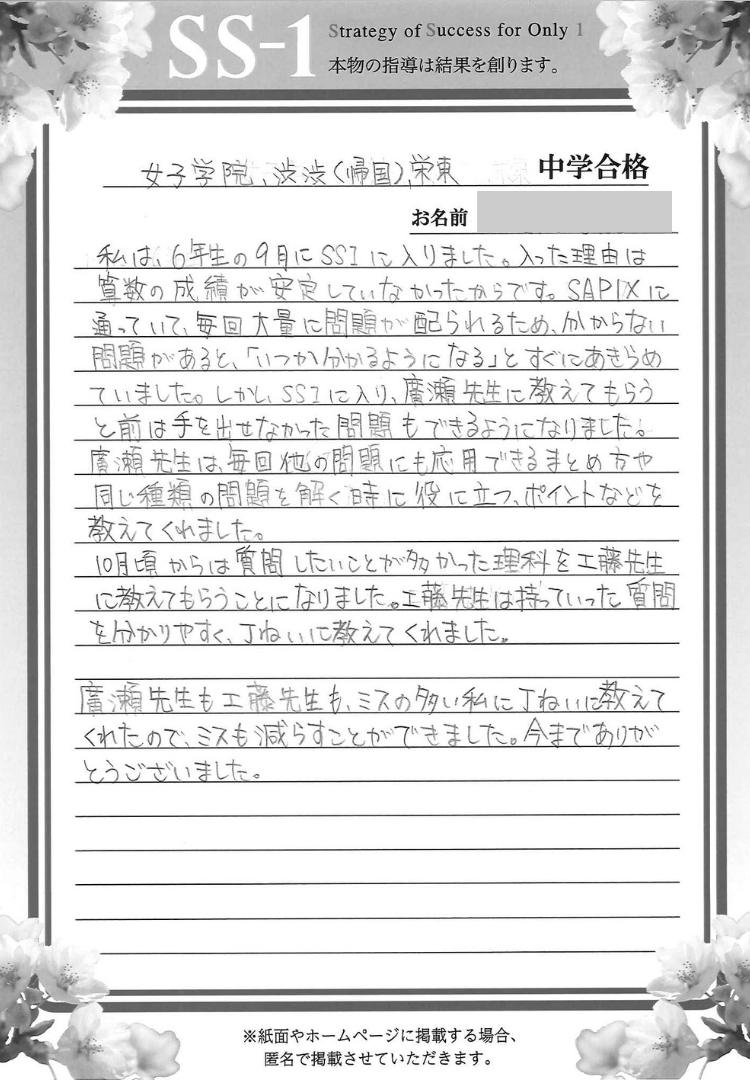 SS-1
Strategy of Success for Only 1
本物の指導は結果を創ります。
女子学院、渋渋(帰国)、栄東 中学合格
お名前
私は、6年生の9月にSS1に入りました。入った理由は
算数の成績が安定していなかったからです。SAPIXに
通っていて、毎回大量に問題が配られるため、分からない
問題があると、「いつか分かるようになる」とすぐにあきらめ
ていました。しかし、SS1に入り、廣瀬先生に教えてもらう
と前は手を出せなかった問題もできるようになりました。
廣瀬先生は、毎回他の問題にも応用できるまとめ方や
同じ種類の問題を解く時に役に立つ、ポイントなどを
教えてくれました。
10月頃からは質問したいことが多かった理科を工藤先生
に教えてもらうことになりました。工藤先生は持っていった質問
を分かりやすく、丁ねいに教えてくれました。
廣瀬先生も工藤先生も、ミスの多い私に丁ねいに教えて
くれたので、ミスも減らすことができました。今までありが
とうございました。
※紙面やホームページに掲載する場合、
匿名で掲載させていただきます。